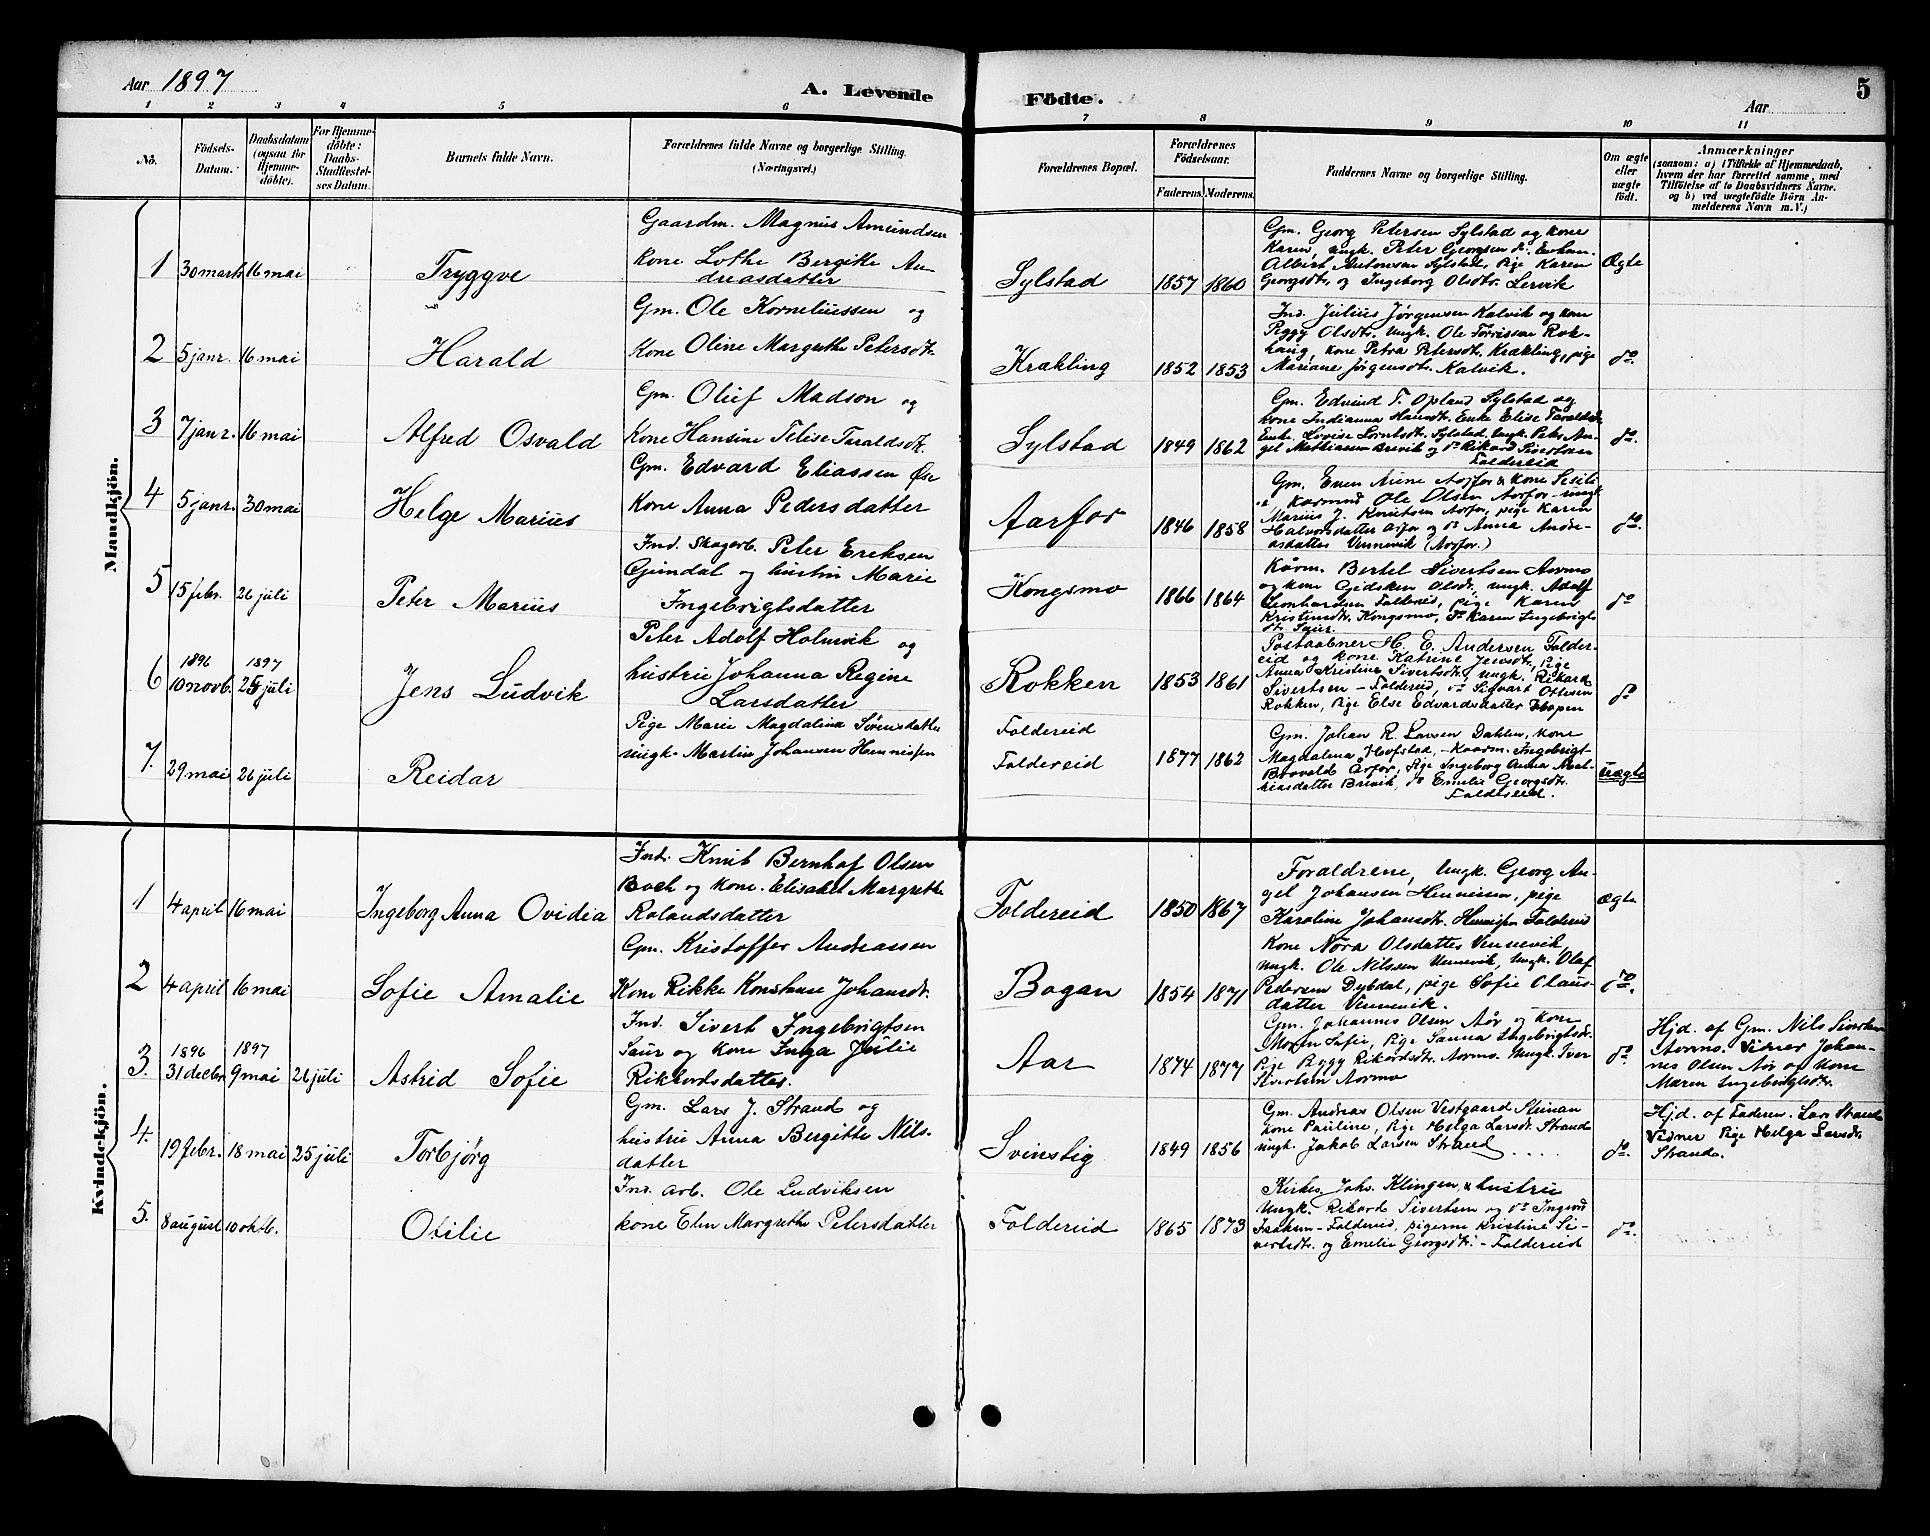 Aar 1897
A. Levende Födte.
Aar
5
1 2 3 4 5 6 7 8 9 10 11
No.
Födsels-
Datum.
Daabsdatum
(ogsaa for
Hjemme-
döbte).
For Hjemme-
döbte:
Daabs-
Stadfæstel-
ses Datum.
Barnets fulde Navn.
Forældrenes fulde Navne og borgerlige Stilling.
(Næringsvei.)
Forældrenes Bopæl.
Forældrenes
Födselsaar.
Faderens. Moderens.
Faddernes Navne og borgerlige Stilling.
Om ægte
eller
uægte
födt.
Anmærkninger
(saasom: a) i Tilfælde af Hjemmedaab,
hvem der har forrettet samme, med
Tilföielse af to Daabsvidners Navne.
og b) ved uægtefödte Börn An-
melderens Navn m. V.)
Mandkjön.
1 30 marts 16 mai
Tryggve
Gaardm. Magnus Amundsen
Kone Lothe Bergitte An-
dreasdatter
Sylstad 1857 1860
Gm. Georg Petersen Sylstad og kone
Karen, ungk. Peter Georgsen
Albert Antonsen Sylstad, Pige Karen
Georgsdtr. og Ingeborg Olsdtr. Lervik
Ægte
2 5 janr. 16 mai
Harald
Gm. Ole Korneliussen og
Kone Oline Margrethe Petersdtr.
Krækling 1852 1853
Ind. Julius Jørgensen Kalvik og kone
Peggy Olsdtr. Ungk. Ole Torrissen Rok-
haug, kone Petra Petersdtr. Krækling, pige
Mariane Jørgensdtr. Kalvik.
do.
3 7 janr. 16 mai
Alfred Osvald
Gm. Oluf Madson og
Kone Hansine Telise Taraldsdtr.
Sylstad 1849 1862
Gm. Edvind T. Opland Sylstad og
kone Indianna Hansdtr. Enke Elise Taraldsdtr.
Enke Lovise Lorntsdtr. Sylstad, Ungk. Peter An-
gel Mathiassen Brevik og do Rikard Sivertsen
Foldereid
do.
4 5 janr. 30 mai
Helge Marius
Gm. Edvard Eliassen
Kone Anna Pedersdatter
Aarfor 1846 1858
Gm. Even Arne Aarfor & kone
Ole Olsen Aarfor - ungk
Marius J. Knutsen Aarfor, pige Karen
Halvorsdatter Arfor og do Anna Andre-
asdatter Vennevik (Aarfor.)
do.
5 15 febr. 26 juli
Peter Marius
Ind. Skogarb. Peter Eriksen
Gjindal og hustru Marie
Ingebrigtsdatter
Kongsmo 1866 1864
Kårm. Bertel Sivertsen Aarmo
og kone Gidsken Olsdtr, ungk. Adolf
Leonhardsen Foldereid, pige Karen
Kristensdtr. Kongsmo, Do Karen Ingebrigts
dtr. Saur.
do
6 1896 10 novb. 1897 25 juli
Jens Ludvik
Peter Adolf Holmvik og
hustru Johanna Regine
Larsdatter
Rokken 1853 1861
Postaabner H. E. Andersen Folder-
eid og kone Katrine Jensdtr, Pige
Anna Kristine Sivertsdtr, ungk. Rikard
Sivertsen - Foldereid, do Sigvart Ottesen
Rokken, Pige Else Edvardsdatter
do
7. 29 mai 26 juli
Reidar
Pige Marie Magdalina Sörensdatter
ungk. Martin Johansen Hennissen
Foldereid
Foldereid 1877 1862
Gm. Johan R. Larsen Dahlen, kone
Magdalena Hofstad, - Kaarm. Ingebrigt
Arfor, Pige Ingeborg Anna Mat-
hiasdatter Brevik, do Emelie Georgsdtr.
Foldereid.
uægte
Kvindekjön.
1 4 april 16 mai
Ingeborg Anna Ovidia
Ind. Knut Bernhof Olsen
Boch og kone Elisabet Margrethe
Rolandsdatter
Foldereid 1850 1867
Foraldrene, Ungk. Georg An-
gel Johansen Hennissen, pige
Karoline Johansdtr. Hennissen Foldereid
Ægte
2 4 april 16 mai
Sofie Amalie
Gm. Kristoffer Andreassen
Kone Rikke Konstanse Johansdtr.
Bogan 1854 1871
Kone Nora Olsdatter Vennevik,
ungk. Ole Nilssen Vennevik, ungk. Olaf
Pedersen Dybdal, pige Sofie Claus-
datter Vennevik.
do.
3. 1896 31 decbr. 1897 9 mai 26 juli
Astrid Sofie
Ind. Sivert Ingebrigtsen
Saur og kone Inga Julie
Rikkordsdatter.
Aar 1874 1877
Gm. Johannes Olsen Aör og kone
Sofie, Pige Sanna Ingebrigtsdtr.
Pige Pegy Rikordsdtr. Aarmo. Ungk. Iver
Sivertsen Aarmo
do.
Hjd. af Gm. Nils Sivertsen
Aarmo. Vidner Johan-
nes Olsen Aör og kone
Maren Ingebrigtsdtr.
4. 19 febr. 18 mai 25 juli
Torbjørg
Gm. Lars J. Strand og
hustru Anna Bergitte Nils-
datter
Svinstig 1849 1856
Gm. Andreas Olsen Vestgaard Steinan
kone Pauline, Pige Helga Larsdtr. Strand
ungk. Jakob Larsen Strand
do.
Hjd. af Faderen. Lars Strand
Vidner Pige Helga Larsdtr.
Strand.
5. 8 august 10 oktb.
Otilie
Ind. arb. Ole Ludviksen
kone Elen Margrethe Petersdatter
Foldereid 1865 1873
Kirkes. Johs. Klingen, & hustru
Ungk. Rikard Sivertsen og do Ingvald
Isaksen - Foldereid, pigerne Kristine Si-
vertsdtr. og Emelie Georgsdtr. - Foldereid
do.